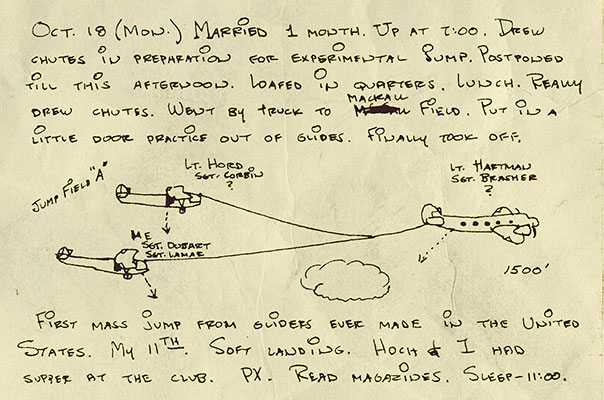 Oct. 18 (Mon.) Married 1 month. Up at 7:00. Drew
chutes in preparation for experimental jump. Postponed
till this afternoon. Loafed in quarters. Lunch. Really
drew chutes. Went by truck to Mackall Field. Put in a
little door practice out of glides. Finally took off.
Jump Field "A"
Lt. Hord
Sgt. Corbin
?
Lt. Hartman
Sgt. Brasher
?
Me
Sgt. Dubart
Sgt. Lamar
1500'
First mass jump from gliders ever made in the United
States. My 11th. Soft landing. Hoch & I had
supper at the club. PX. Read magazines. Sleep-11:00.